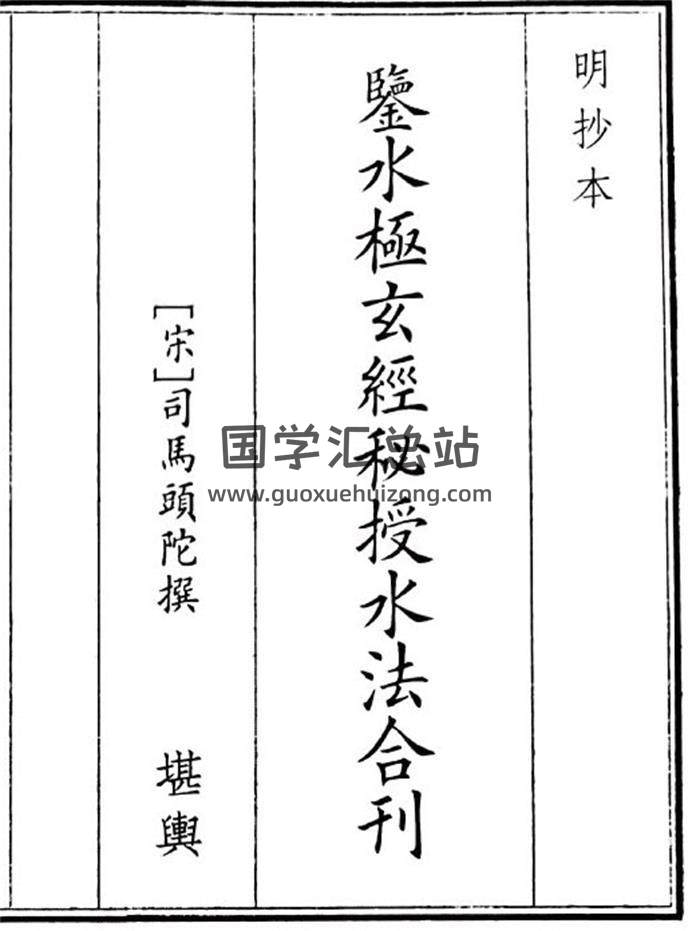 明抄本
鑒水極玄經秘授水法合刊
[宋]司馬頭陀撰
堪輿
国学汇总站
www.guoxuehuizong.com